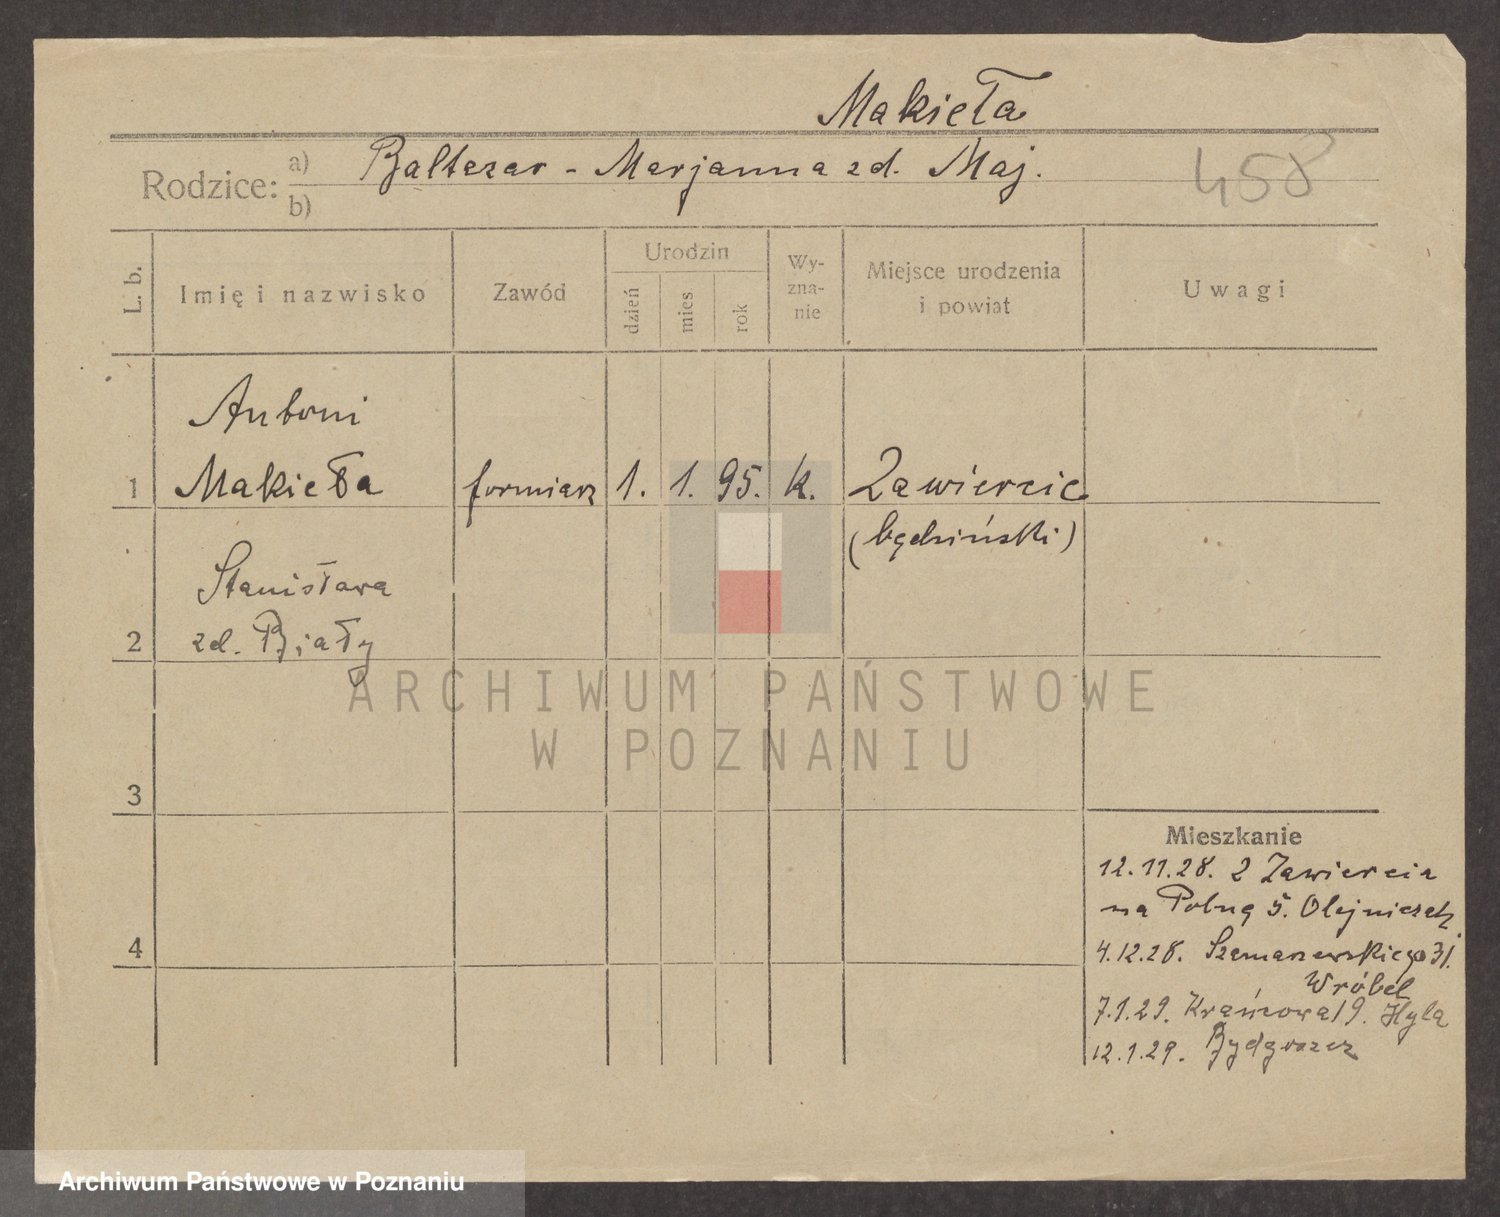 Makieła
Rodzice: a) Baltezar - Marjanna zd. Maj.
b)
458
L. b.
Imię i nazwisko
Zawód
Urodzin
dzień
mies
rok
Wy-
zna-
nie
Miejsce urodzenia
i powiat
Uwagi
Antoni
1 Makieła formiarz 1. 1. 95. k. Zawiercie
(będziński)
Stanisława
2 zd. Biały
3
4
Mieszkanie
12.11.28. z Zawiercia
na Polną 5. Olejniczak
4.12.28. Szamarzewskiego 31.
Wróbel
7.1.29. Krańcowa 19. Hyla
12.1.29. Bydgoszcz
ARCHIWUM PAŃSTWOWE
W POZNANIU
Archiwum Państwowe w Poznaniu